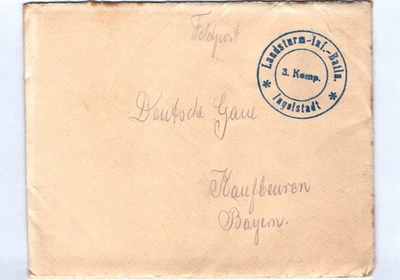 Feldpost
* Landsturm-Inf.-Batln. *
3. Komp.
Ingolstadt
Deutsche Gaue
Kaufbeuren
Bayern.